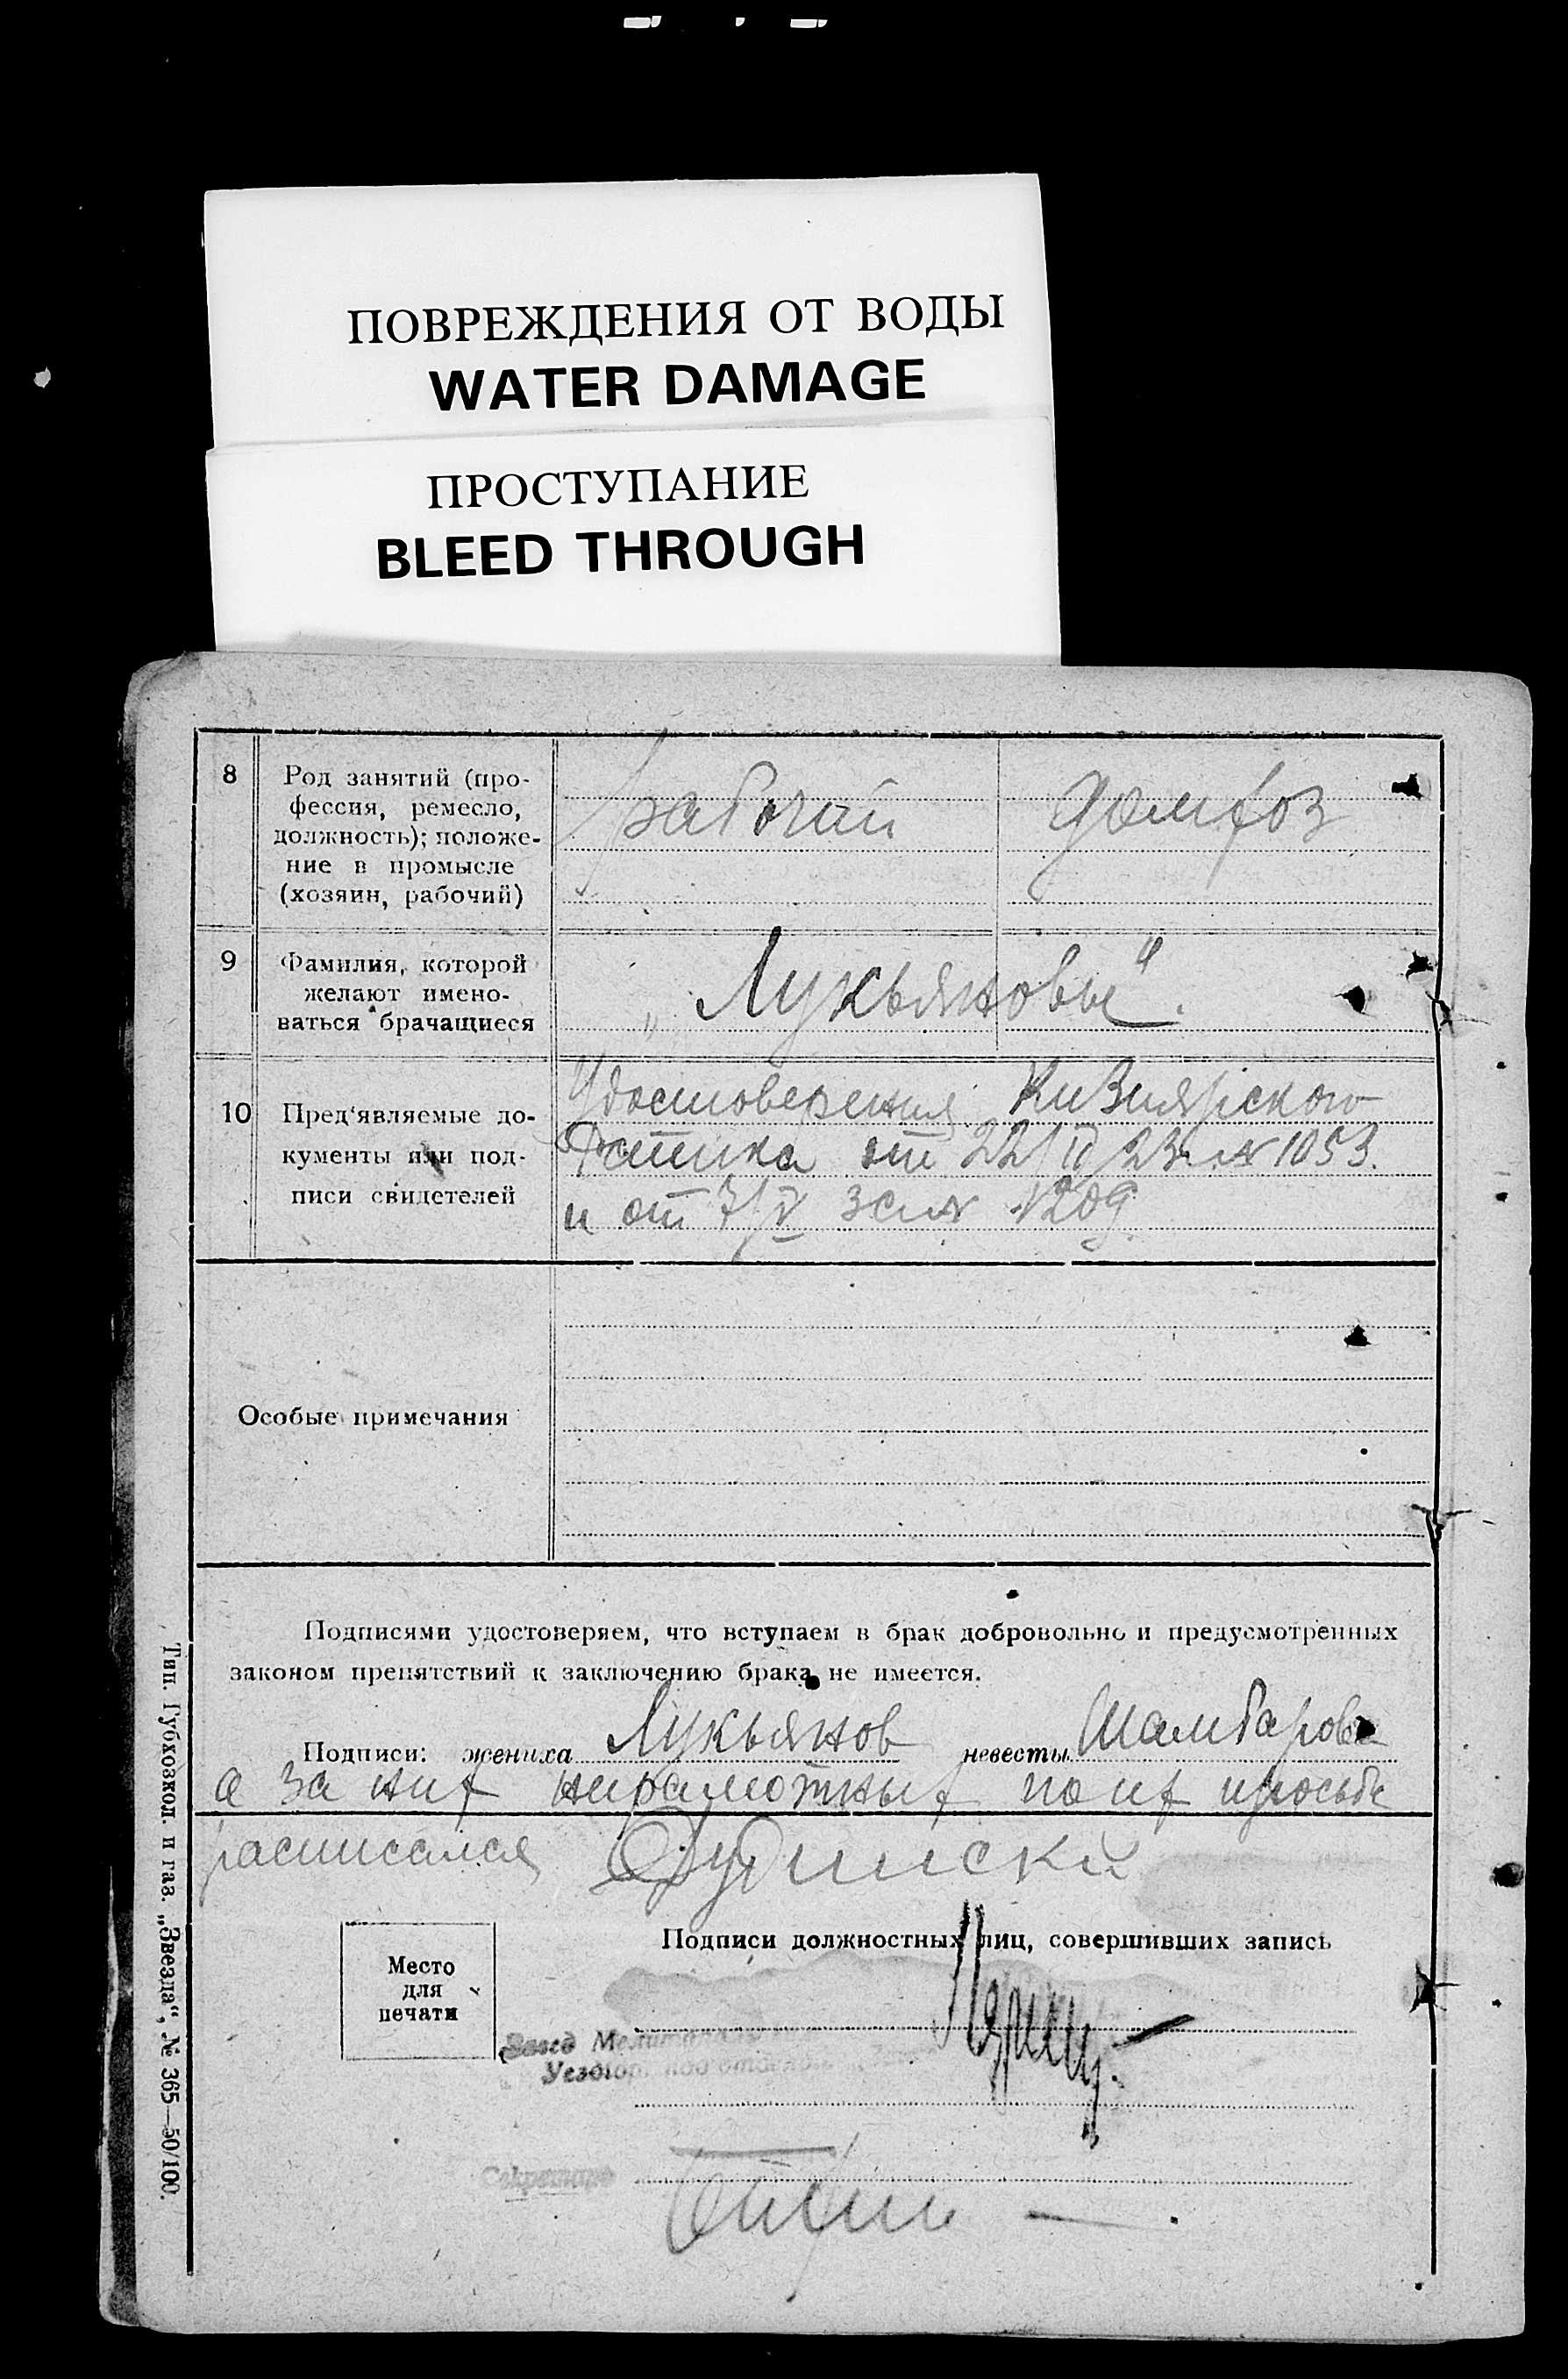 ПОВРЕЖДЕНИЯ ОТ ВОДЫ
WATER DAMAGE
ПРОСТУПАНИЕ
BLEED THROUGH
8 Род занятий (про-
фессия, ремесло,
должность); положе-
ние в промысле
(хозяин, рабочий)
рабочий
домхоз
9 Фамилия, которой
желают имено-
ваться брачащиеся
„Лукьяновы“.
10 Пред'являемые до-
кументы или под-
писи свидетелей
Удостоверения Кизиярского
от 22/ 23 № 1053.
и от 7/V № 209
Особые примечания
Подписями удостоверяем, что вступаем в брак добровольно и предусмотренных
законом препятствий к заключению брака не имеется.
Подписи: жениха Лукьянов невесты Шамбарова
а за них неграмотных по их просьбе
расписался
Подписи должностных лиц, совершивших запись
Место
для
печати
Завед
Секретарь
Тип. Губхозкол. п газ. „Звезда“, № 365—50/100.